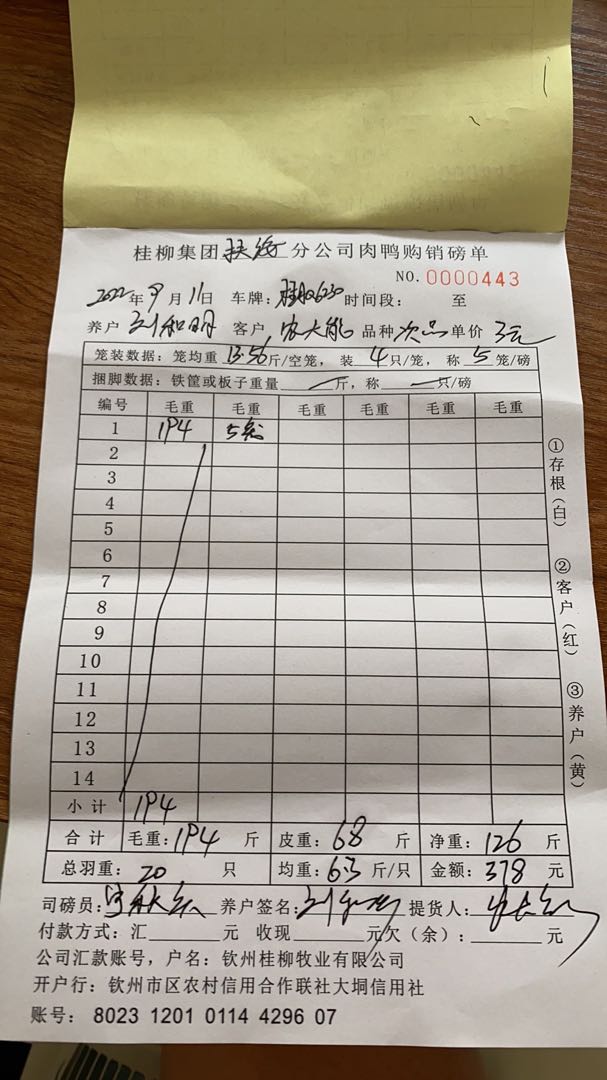 桂柳集团扶绥分公司肉鸭购销磅单
NO.0000443
2022年9月11日 车牌: 时间段: 至
养户 刘和明 客户 农大能 品种 次品 单价 3元
笼装数据: 笼均重 13.56 斤/空笼, 装 4 只/笼, 称 5 笼/磅
捆脚数据: 铁筐或板子重量 — 斤, 称 — 只/磅
编号 毛重 毛重 毛重 毛重 毛重 毛重
1 194 5笼
2
3
4
5
6
7
8
9
10
11
12
13
14
小计 194
合计 毛重: 194 斤 皮重: 68 斤 净重: 126 斤
总羽重: 20 只 均重: 6.3 斤/只 金额: 378 元
司磅员: 养户签名: 提货人:
付款方式: 汇 元 收现 元欠(余): 元
公司汇款账号, 户名: 钦州桂柳牧业有限公司
开户行: 钦州市区农村信用合作联社大垌信用社
账号: 8023 1201 0114 4296 07
①存根(白)
②客户(红)
③养户(黄)